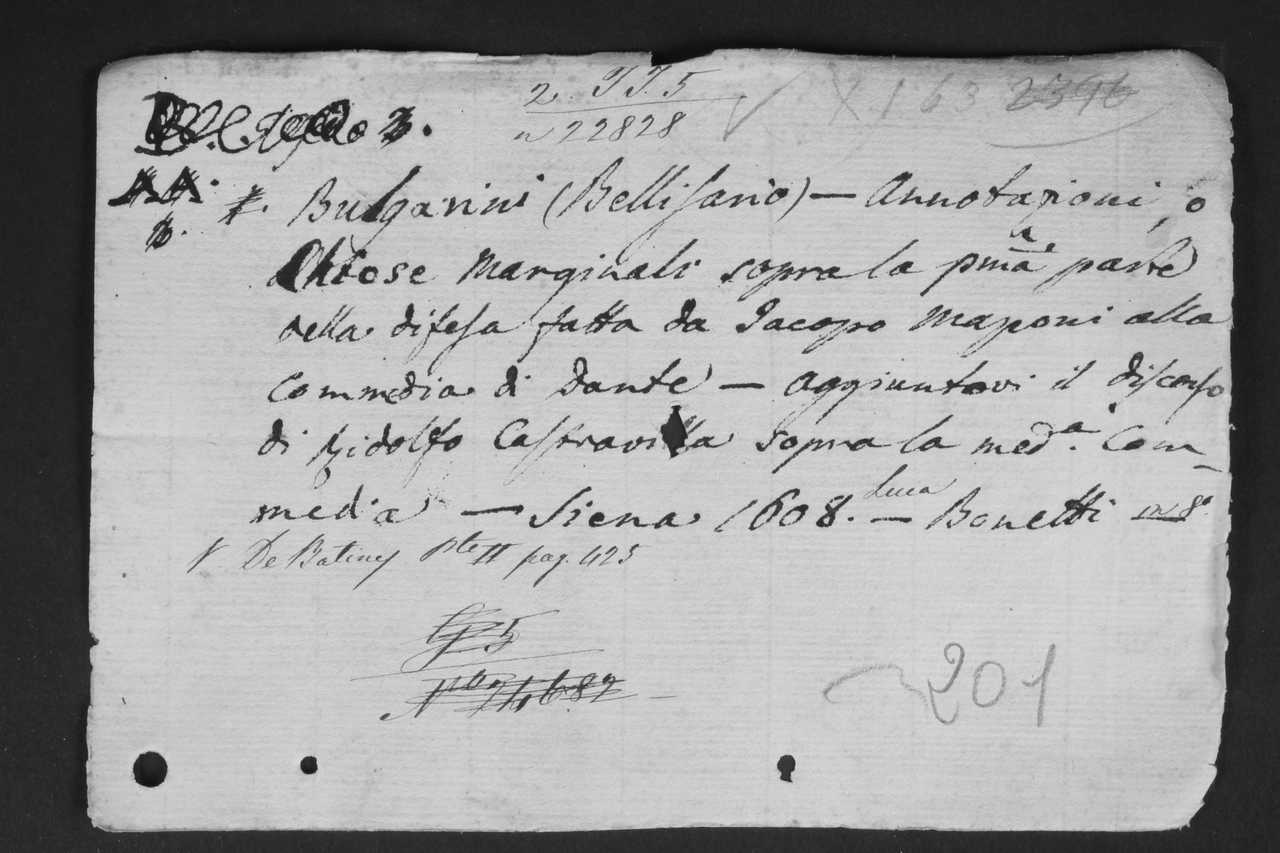 2. TT.5
n 22828
X 1 63 2396
Bulgarini (Bellisario) — Annotazioni, o
Chiose marginali sopra la pma. parte
della difesa fatta da Jacopo Mazoni alla
Commedia di Dante — aggiuntovi il discorso
di Ridolfo Castravilla sopra la meda. Com-
media — Siena 1608. — Luca Bonetti in 8°.
V De Batines Pte II pag. 425
5
No 24682
201